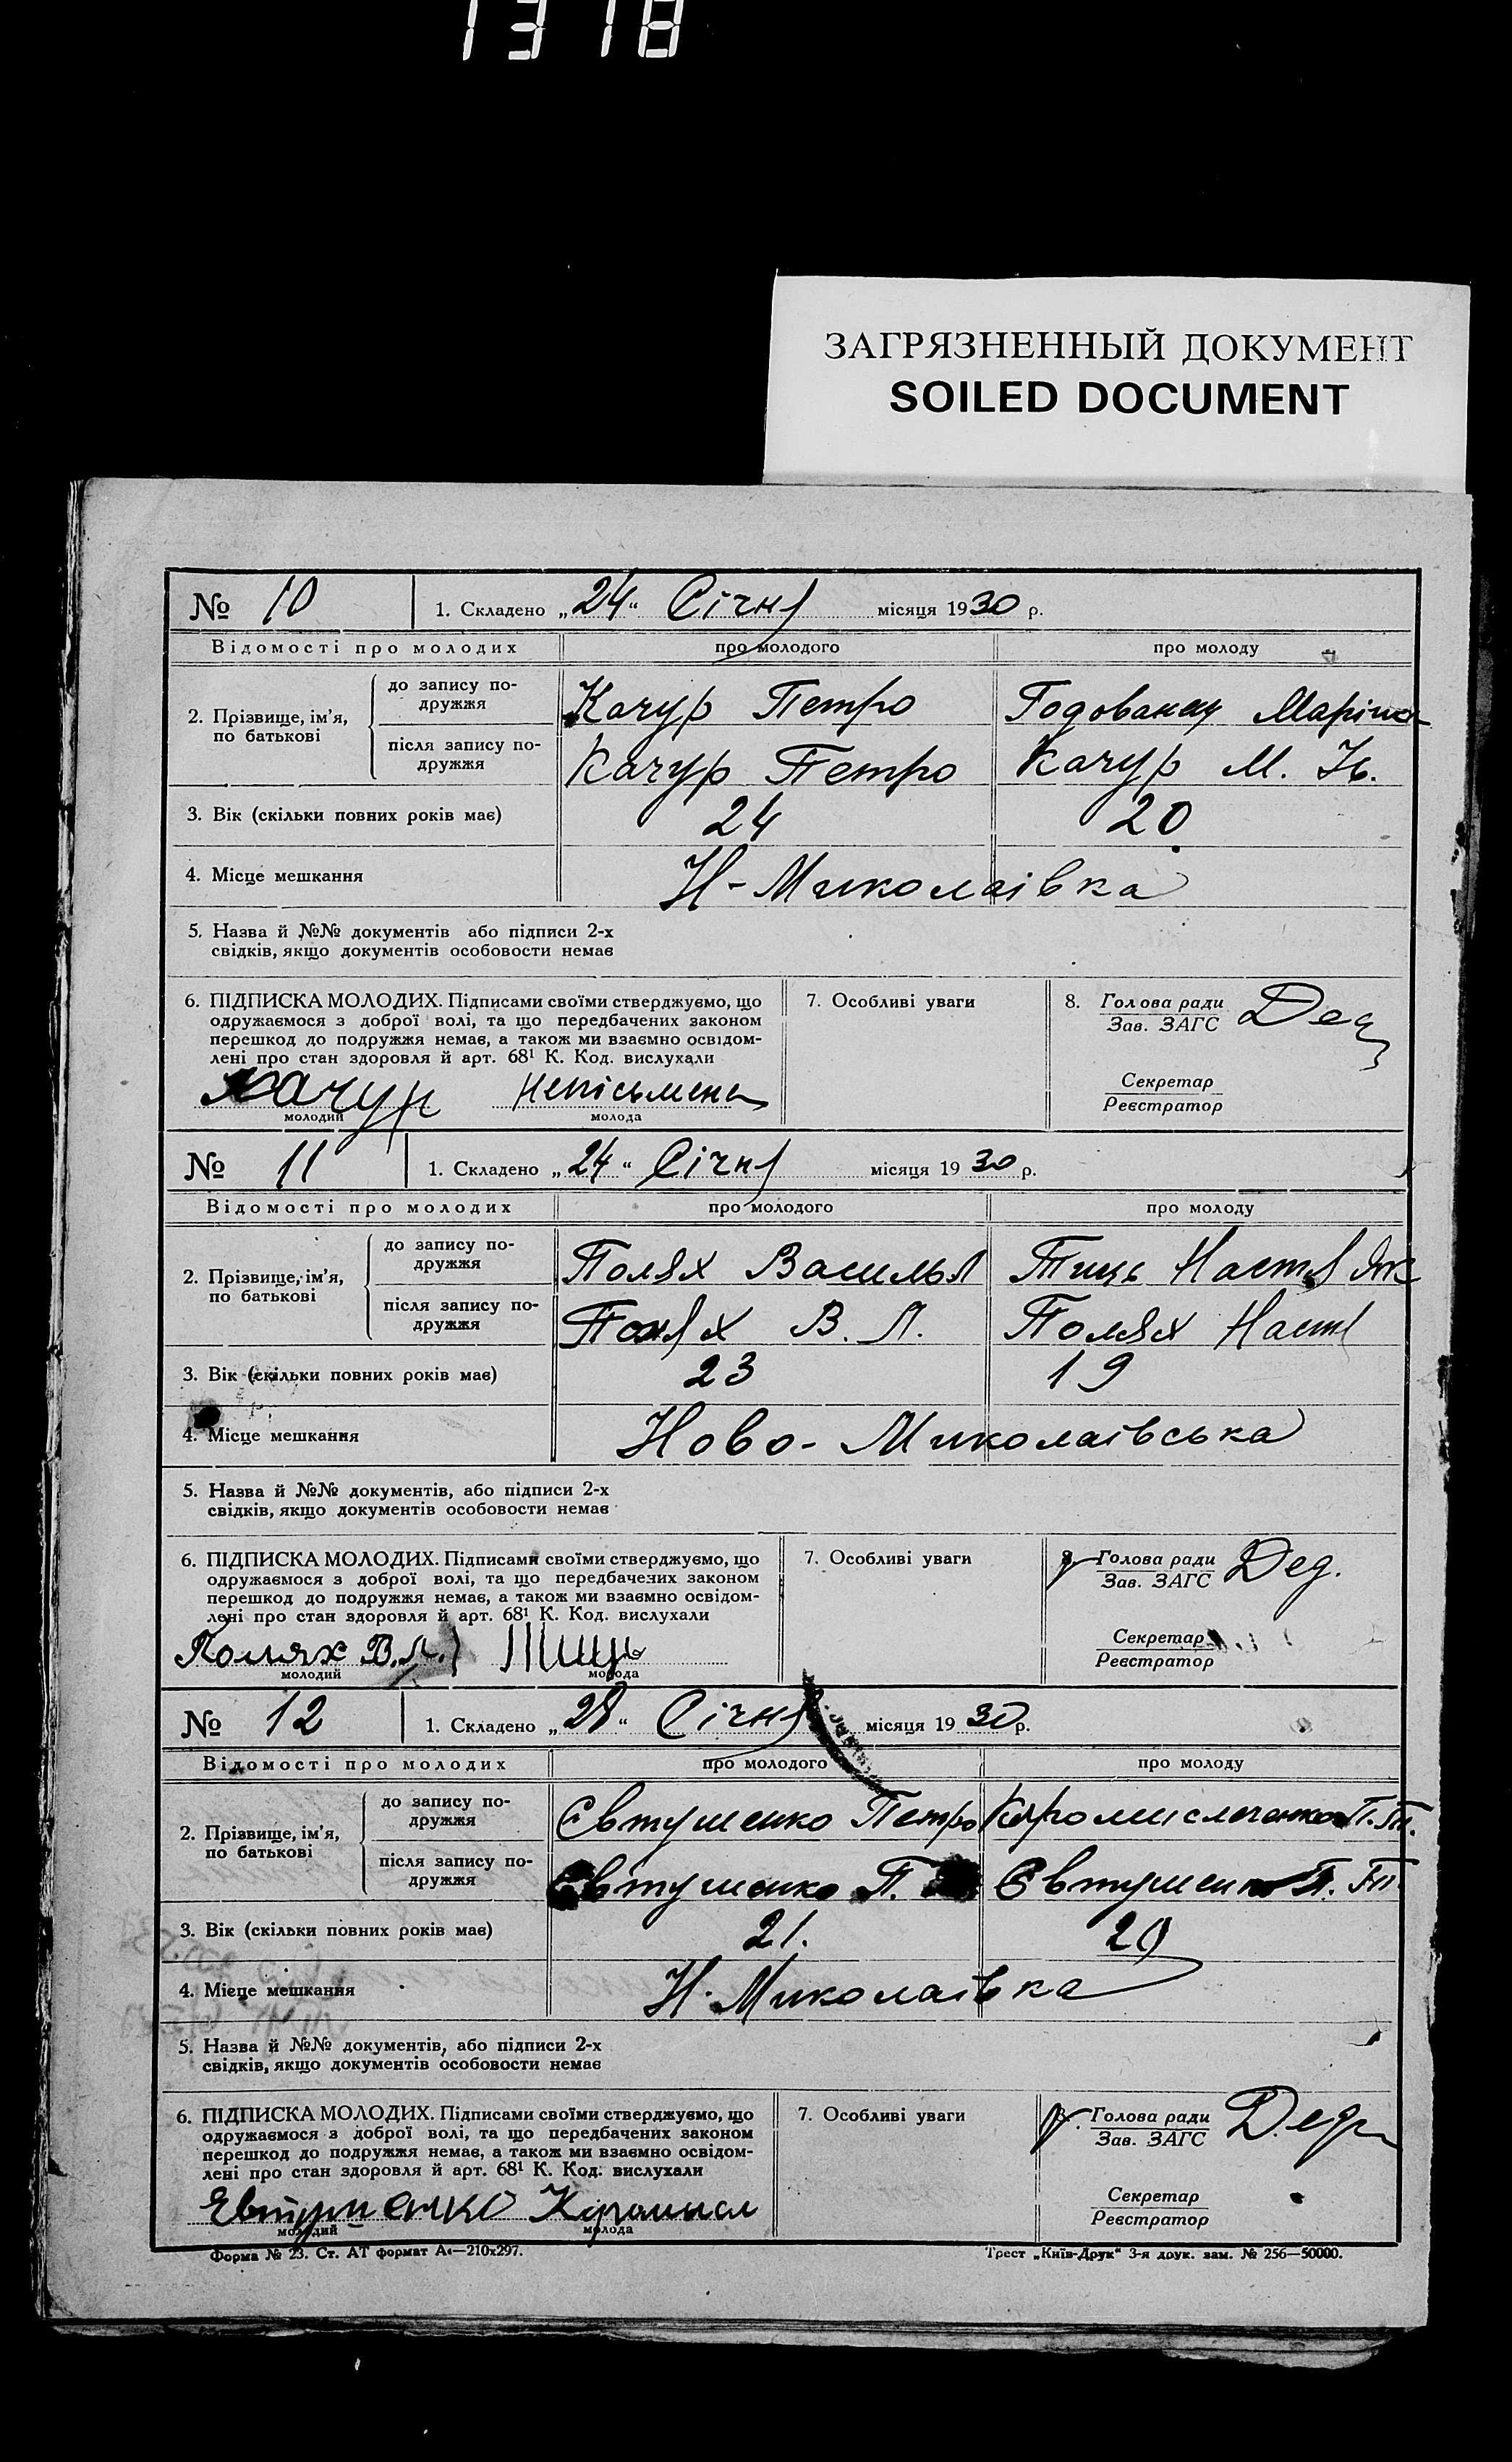 1378
ЗАГРЯЗНЕННЫЙ ДОКУМЕНТ
SOILED DOCUMENT
№ 10 1. Складено „24“ Січня місяця 1930 р.
Відомості про молодих про молодого про молоду
2. Прізвище, ім’я, по батькові
до запису по-дружжя Качур Петро
після запису по-дружжя Качур Петро Качур М.
3. Вік (скільки повних років має) 24 20
4. Місце мешкання Н-Миколаівка
5. Назва й №№ документів або підписи 2-х
свідків, якщо документів особовости немає
6. ПІДПИСКА МОЛОДИХ. Підписами своїми стверджуємо, що
одружаємося з доброї волі, та що передбачених законом
перешкод до подружжя немає, а також ми взаємно освідом-
лені про стан здоровля й арт. 68¹ К. Код. вислухали
Качур
молодий молода
7. Особливі уваги
8. Голова ради
Зав. ЗАГС
Секретар
Реєстратор
№ 11 1. Складено „24“ Січня місяця 1930 р.
Відомості про молодих про молодого про молоду
2. Прізвище, ім’я, по батькові
до запису по-дружжя Полях Тиць
після запису по-дружжя Полях В. Л. Полях
3. Вік (скільки повних років має) 23 19
4. Місце мешкання Ново-Миколаівська
5. Назва й №№ документів, або підписи 2-х
свідків, якщо документів особовости немає
6. ПІДПИСКА МОЛОДИХ. Підписами своїми стверджуємо, що
одружаємося з доброї волі, та що передбачених законом
перешкод до подружжя немає, а також ми взаємно освідом-
лені про стан здоровля й арт. 68¹ К. Код. вислухали
Полях В.Л. Тиць
молодий молода
7. Особливі уваги
8. Голова ради
Зав. ЗАГС Дед.
Секретар
Реєстратор
№ 12 1. Складено „28“ Січня місяця 1930 р.
Відомості про молодих про молодого про молоду
2. Прізвище, ім’я, по батькові
до запису по-дружжя Євтушенко Петро
після запису по-дружжя Євтушенко П. Євтушенко П.
3. Вік (скільки повних років має) 21. 20
4. Місце мешкання Н. Миколаівка
5. Назва й №№ документів, або підписи 2-х
свідків, якщо документів особовости немає
6. ПІДПИСКА МОЛОДИХ. Підписами своїми стверджуємо, що
одружаємося з доброї волі, та що передбачених законом
перешкод до подружжя немає, а також ми взаємно освідом-
лені про стан здоровля й арт. 68¹ К. Код. вислухали
молодий молода
7. Особливі уваги
Голова ради
Зав. ЗАГС
Секретар
Реєстратор
Форма № 23. Ст. АТ формат А4—210x297. Трест „Київ-Друк“ 3-я друк. зам. № 256—50000.